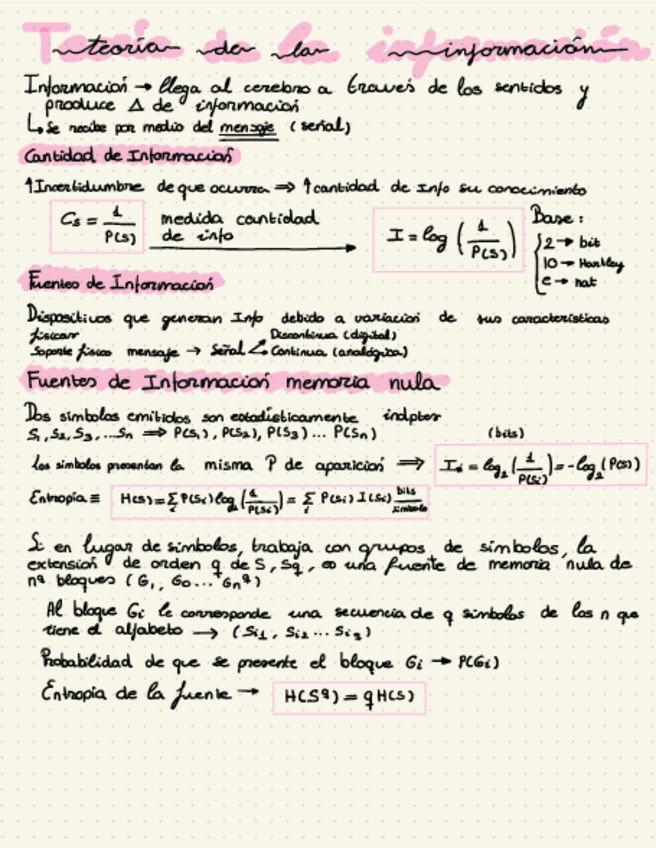 teoría de la información
Información → llega al cerebro a traves de los sentidos y
produce Δ de información
↳ Se recibe por medio del mensaje (señal)
Cantidad de Información
↑Incertidumbre de que ocurra ⇒ ↑cantidad de Info su conocimiento
Cs = 1/P(s) medida cantidad de info → I = log (1/P(s)) Base:
2 → bit
10 → Hartley
e → nat
Fuentes de Información
Dispositivos que generan Info debido a variación de sus características
físicas
Discontinua (digital)
Soporte físico mensaje → Señal < Continua (analógica)
Fuentes de Información memoria nula
Dos símbolos emitidos son estadísticamente indptes
S1, S2, S3, ...Sn ⇒ P(S1), P(S2), P(S3) ... P(Sn) (bits)
Los símbolos presentan la misma P de aparición ⇒ Ii = log2 (1/P(Si)) = -log2 (P(s))
Entropía ≡ H(s) = Σi P(Si) log2 (1/P(Si)) = Σi P(Si) I(Si) bits/símbolo
Si en lugar de símbolos, trabaja con grupos de símbolos, la
extensión de orden q de S, Sq, es una fuente de memoria nula de
nq bloques (G1, G0... Gnq)
Al bloque Gi le corresponde una secuencia de q símbolos de los n que
tiene el alfabeto → (Si1, Si2 ... Siq)
Probabilidad de que se presente el bloque Gi → P(Gi)
Entropía de la fuente → H(Sq) = q H(S)